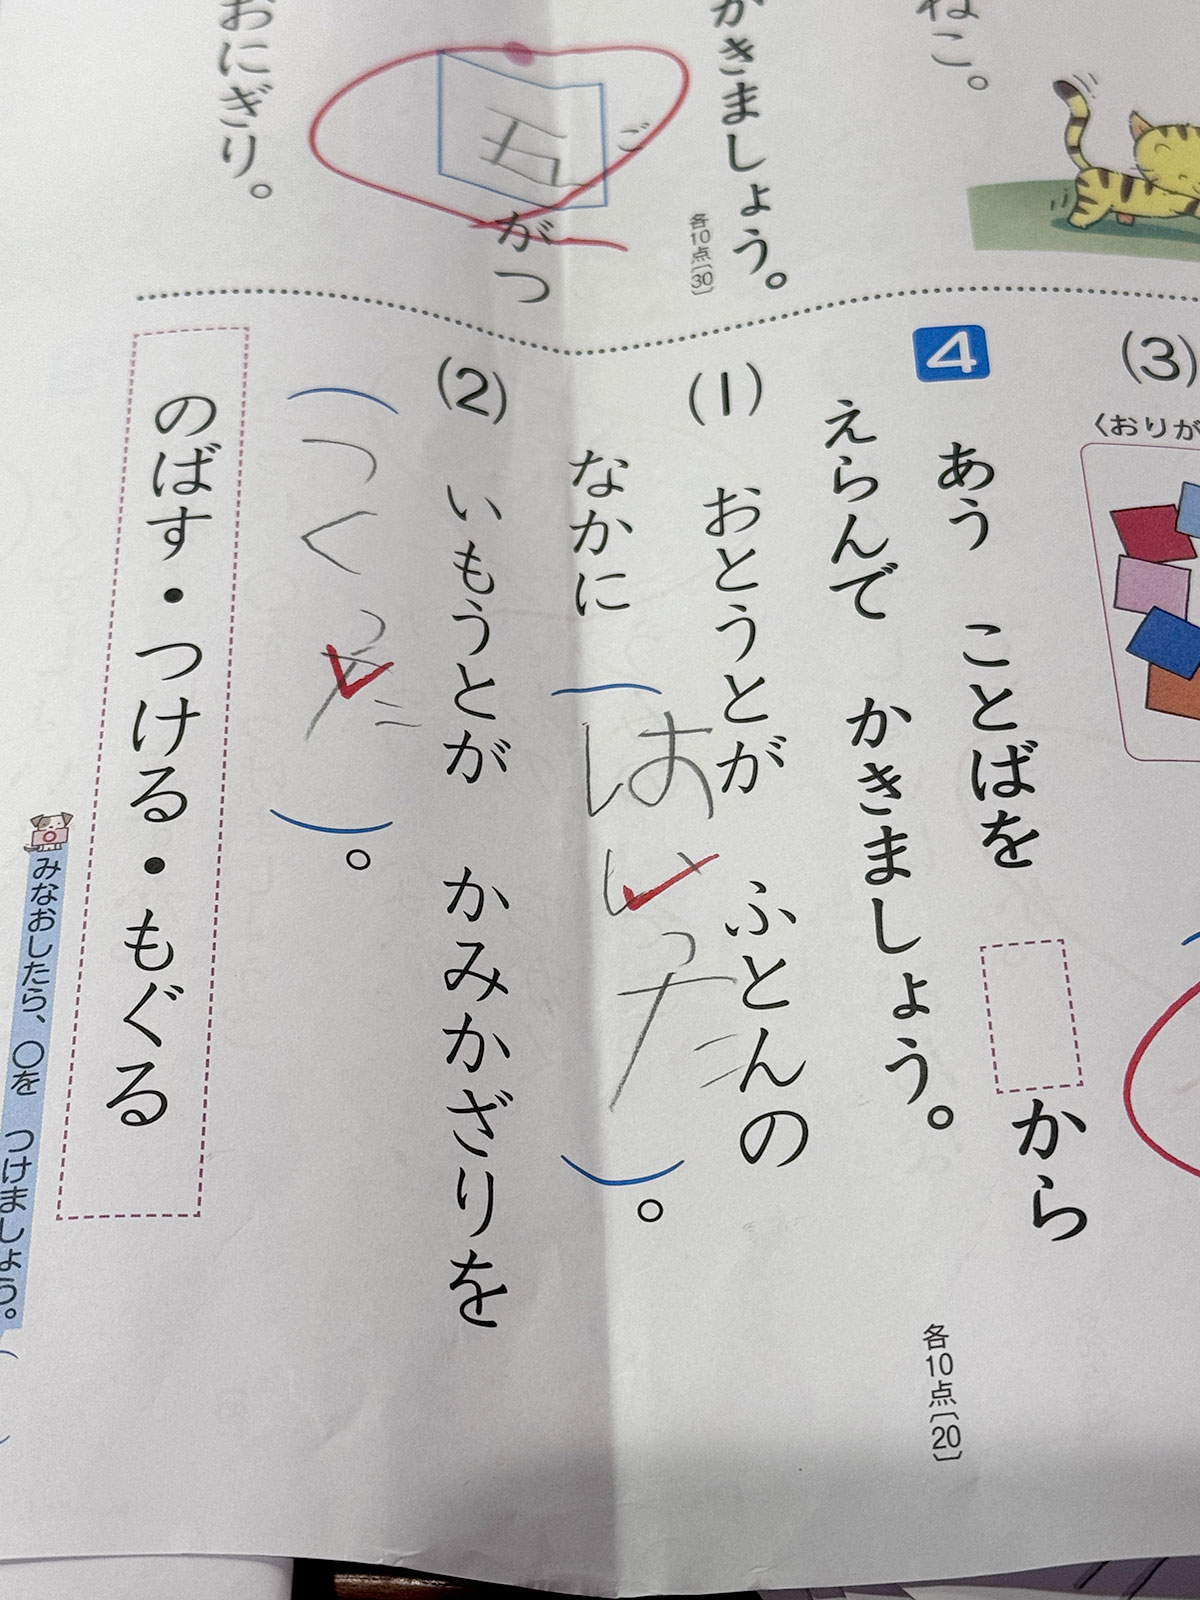 ねこ。
かきましょう。
各10点〔30〕
ご
五
がつ
おにぎり。
(3)
〈おりが
4 あう ことばを から
えらんで かきましょう。
各10点〔20〕
(1) おとうとが ふとんの
なかに(はいった)。
(2) いもうとが かみかざりを
(つくった)。
のばす・つける・もぐる
みなおしたら、〇を つけましょう。